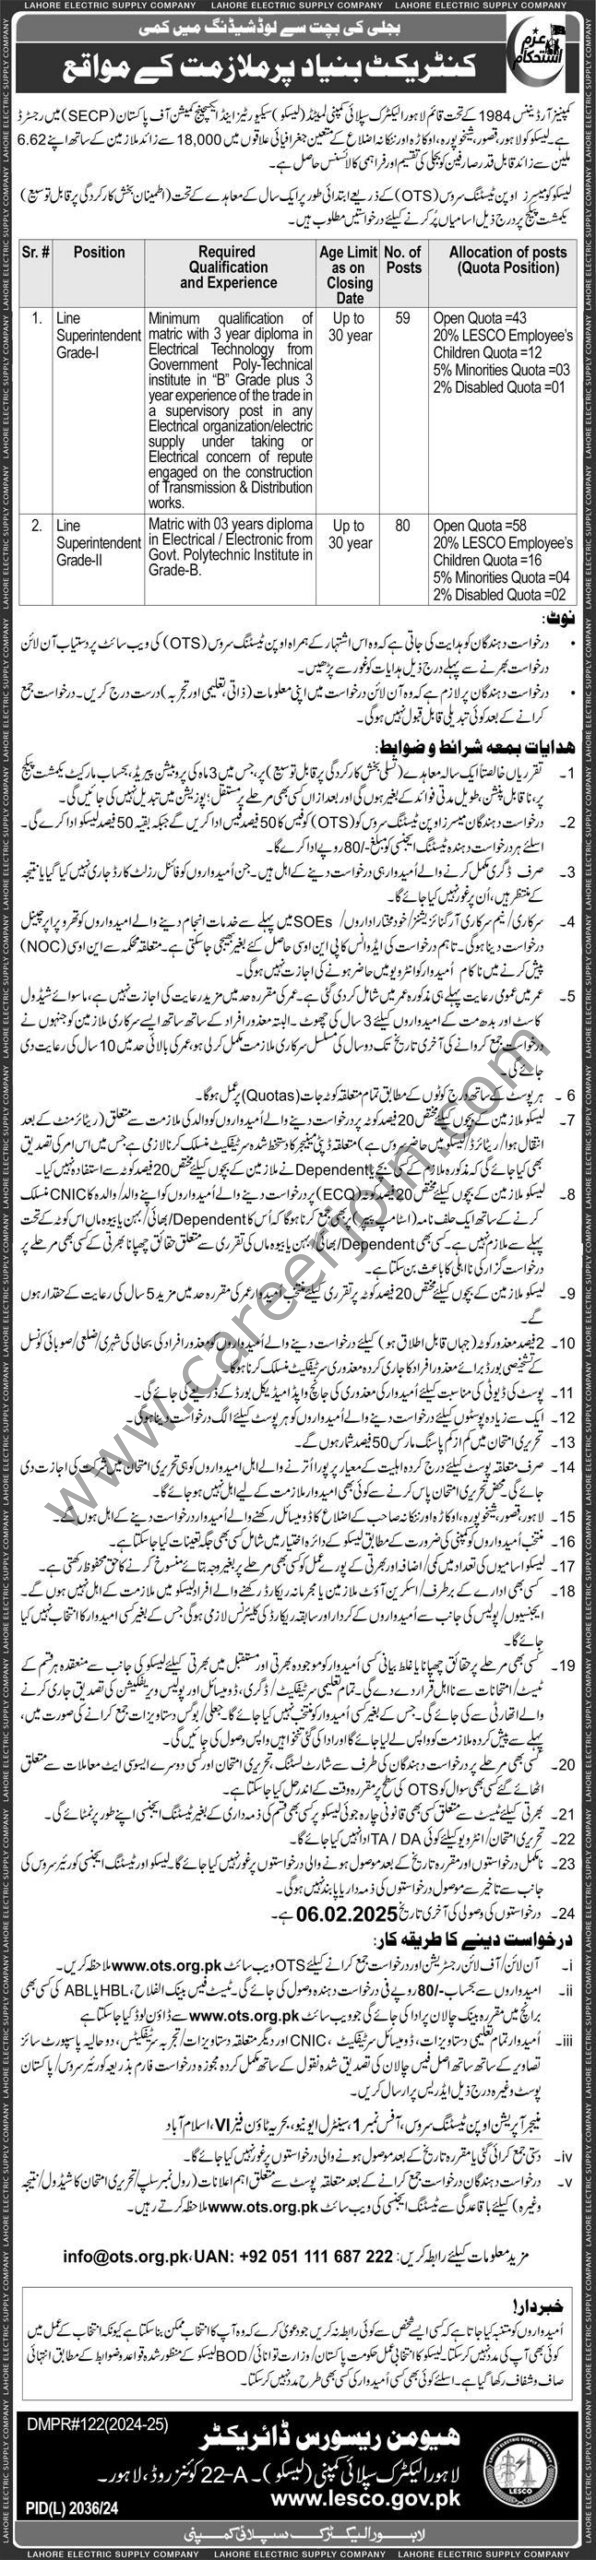 LAHORE ELECTRIC SUPPLY COMPANY LAHORE ELECTRIC SUPPLY COMPANY LAHORE ELECTRIC SUPPLY COMPANY
بجلی کی بچت سے لوڈشیڈنگ میں کمی
کنٹریکٹ بنیاد پر ملازمت کے مواقع
عزم استحکام
کمپنیز آرڈیننس 1984 کے تحت قائم لاہور الیکٹرک سپلائی کمپنی لمیٹڈ (لیسکو) سیکیورٹیز اینڈ ایکسچینج کمیشن آف پاکستان (SECP) میں رجسٹرڈ
ہے۔ لیسکو کو لاہور، قصور، شیخوپورہ، اوکاڑہ اور ننکانہ اضلاع کے متعین جغرافیائی علاقوں میں 18,000 سے زائد ملازمین کے ساتھ اپنے 6.62
ملین سے زائد قابل قدر صارفین کو بجلی کی تقسیم اور فراہمی کا لائسنس حاصل ہے۔
لیسکو کو میسرز اوپن ٹیسٹنگ سروس (OTS) کے ذریعے ابتدائی طور پر ایک سال کے معاہدے کے تحت (اطمینان بخش کارکردگی پر قابل توسیع)
یکمشت پیکج پر درج ذیل اسامیاں پُر کرنے کیلئے درخواستیں مطلوب ہیں۔
Sr. # Position Required Qualification and Experience Age Limit as on Closing Date No. of Posts Allocation of posts (Quota Position)
1. Line Superintendent Grade-I
Minimum qualification of
matric with 3 year diploma in
Electrical Technology from
Government Poly-Technical
institute in “B” Grade plus 3
year experience of the trade in
a supervisory post in any
Electrical organization/electric
supply under taking or
Electrical concern of repute
engaged on the construction
of Transmission & Distribution
works.
Up to 30 year
59
Open Quota =43
20% LESCO Employee's
Children Quota =12
5% Minorities Quota =03
2% Disabled Quota =01
2. Line Superintendent Grade-II
Matric with 03 years diploma
in Electrical / Electronic from
Govt. Polytechnic Institute in
Grade-B.
Up to 30 year
80
Open Quota =58
20% LESCO Employee's
Children Quota =16
5% Minorities Quota =04
2% Disabled Quota =02
نوٹ:
• درخواست دہندگان کو ہدایت کی جاتی ہے کہ وہ اس اشتہار کے ہمراہ اوپن ٹیسٹنگ سروس (OTS) کی ویب سائٹ پر دستیاب آن لائن
درخواست بھرنے سے پہلے درج ذیل ہدایات کو غور سے پڑھیں۔
• درخواست دہندگان پر لازم ہے کہ وہ آن لائن درخواست میں اپنی معلومات (ذاتی، تعلیمی اور تجربہ) درست درج کریں۔ درخواست جمع
کرانے کے بعد کوئی تبدیلی قابل قبول نہیں ہوگی۔
ھدایات بمعہ شرائط و ضوابط:
1۔ تقرریاں خالصتاً ایک سالہ معاہدے (تسلی بخش کارکردگی پر قابل توسیع) پر، جس میں 3 ماہ کی پروبیشن پیریڈ، بحساب مارکیٹ یکمشت پیکج
پر، ناقابل پنشن، طویل مدتی فوائد کے بغیر ہوں گی اور بعد ازاں کسی بھی مرحلے پر مستقل پوزیشن میں تبدیل نہیں کی جائیں گی۔
2۔ درخواست دہندگان میسرز اوپن ٹیسٹنگ سروس کو (OTS) کو فیس کا 50 فیصد فیس ادا کریں گے جبکہ بقیہ 50 فیصد لیسکو ادا کرے گی۔
اسلئے ہر درخواست دہندہ ٹیسٹنگ ایجنسی کو مبلغ -/80 روپے ادا کرے گا۔
3۔ صرف ڈگری مکمل کرنے والے امیدوار ہی درخواست دینے کے اہل ہیں۔ جن اُمیدواروں کو فائنل رزلٹ کارڈ جاری نہیں کیا گیا یا نتیجہ
کے منتظر ہیں، اُن پر غور نہیں کیا جائے گا۔
4۔ سرکاری/نیم سرکاری آرگنائزیشنز/خود مختار اداروں/SOEs میں پہلے سے خدمات انجام دینے والے امیدواروں کو تھرو پراپر چینل
درخواست دینا ہوگی۔ تاہم درخواست کی ایڈوانس کاپی این او سی حاصل کئے بغیر بھیجی جاسکتی ہے۔ متعلقہ محکمہ سے این او سی (NOC)
پیش کرنے میں ناکام اُمیدوار کو انٹرویو میں حاضر ہونے کی اجازت نہیں ہوگی۔
5۔ عمر میں عمومی رعایت پہلے ہی مذکورہ عمر میں شامل کر دی گئی ہے۔ عمر کی مقررہ حد میں مزید رعایت کی اجازت نہیں ہے، ماسوائے شیڈول
کاسٹ اور بدھ مت کے امیدواروں کیلئے 3 سال کی چھوٹ۔ البتہ معذور افراد کے ساتھ ساتھ ایسے سرکاری ملازمین کو جنہوں نے
درخواست جمع کروانے کی آخری تاریخ تک دو سال کی مسلسل سرکاری ملازمت مکمل کرلی ہو، عمر کی بالائی حد میں 10 سال کی رعایت دی
جائے گی۔
6۔ ہر پوسٹ کے ساتھ درج کوٹوں کے مطابق تمام متعلقہ کوٹہ جات (Quotas) پر عمل ہوگا۔
7۔ لیسکو ملازمین کے بچوں کیلئے مختص 20 فیصد کوٹہ پر درخواست دینے والے اُمیدواروں کو والد کی ملازمت سے متعلق (ریٹائرمنٹ کے بعد
انتقال ہوا/ریٹائرڈ/لیسکو میں حاضر سروس ہے) متعلقہ ڈپٹی منیجر کا دستخط شدہ سرٹیفکیٹ منسلک کرنا لازمی ہے جس میں اس امر کی تصدیق
بھی کیا جائے گی کہ مذکورہ ملازم کے کسی بچے/Dependent نے ملازمین کے بچوں کیلئے مختص 20 فیصد کوٹہ سے استفادہ نہیں کیا۔
8۔ لیسکو ملازمین کے بچوں کیلئے مختص 20 فیصد کوٹہ (ECQ) پر درخواست دینے والے اُمیدواروں کو اپنے والد/والدہ کا CNIC منسلک
کرنے کے ساتھ ایک حلف نامہ (اسٹامپ پیپر) بھی جمع کرنا ہوگا کہ اُس کا Dependent/بھائی/بہن یا بیوہ ماں اس کوٹہ کے تحت
پہلے سے ملازم نہیں ہے۔ کسی بھی Dependent/بھائی/بہن یا بیوہ ماں کی تقرری سے متعلق حقائق چھپانا بھرتی کے کسی بھی مرحلے پر
درخواست گزار کی نااہلی کا باعث بن سکتا ہے۔
9۔ لیسکو ملازمین کے بچوں کیلئے مختص 20 فیصد کوٹہ پر تقرری کیلئے منتخب اُمیدوار عمر کی مقررہ حد میں مزید 5 سال کی رعایت کے حقدار ہوں
گے۔
10۔ 2 فیصد معذور کوٹہ (جہاں قابل اطلاق ہو) کیلئے درخواست دینے والے اُمیدواروں کو معذور افراد کی بحالی کی شہری/ضلعی/صوبائی کونسل
کے تشخیصی بورڈ برائے معذور افراد کا جاری کردہ معذوری سرٹیفکیٹ منسلک کرنا ہوگا۔
11۔ پوسٹ کی ڈیوٹی کی مناسبت کیلئے اُمیدوار کی معذوری کی جانچ واپڈا میڈیکل بورڈ کے ذریعے کی جائے گی۔
12۔ ایک سے زیادہ پوسٹوں کیلئے درخواست دینے والے اُمیدواروں کو ہر پوسٹ کیلئے الگ درخواست دینا ہوگی۔
13۔ تحریری امتحان میں کم از کم پاسنگ مارکس 50 فیصد شمار ہوں گے۔
14۔ صرف متعلقہ پوسٹ کیلئے درج کردہ اہلیت کے معیار پر پورا اُترنے والے اہل اُمیدواروں کو ہی تحریری امتحان میں شرکت کی اجازت دی
جائے گی۔ محض تحریری امتحان پاس کرنے سے کوئی بھی اُمیدوار ملازمت کے لیے اہل نہیں ہو جائے گا۔
15۔ لاہور، قصور، شیخوپورہ، اوکاڑہ اور ننکانہ صاحب کے اضلاع کا ڈومیسائل رکھنے والے اُمیدوار درخواست دینے کے اہل ہوں گے۔
16۔ منتخب اُمیدواروں کو کمپنی کی ضرورت کے مطابق لیسکو کے دائرہ اختیار میں شامل کسی بھی جگہ تعینات کیا جاسکتا ہے۔
17۔ لیسکو اسامیوں کی تعداد میں کمی/اضافہ اور بھرتی کے پورے عمل کو کسی بھی مرحلے پر بغیر وجہ بتائے منسوخ کرنے کا حق محفوظ رکھتی ہے۔
18۔ کسی بھی ادارے کے برطرف/اسکرین آؤٹ ملازمین یا مجرمانہ ریکارڈ رکھنے والے افراد لیسکو میں ملازمت کے اہل نہیں ہوں گے۔
ایجنسیوں/پولیس کی جانب سے اُمیدواروں کے کردار اور سابقہ ریکارڈ کی کلیئرنس لازمی ہوگی جس کے بغیر کسی امیدوار کا انتخاب نہیں کیا
جائے گا۔
19۔ کسی بھی مرحلے پر حقائق چھپانا یا غلط بیانی کسی اُمیدوار کو موجودہ بھرتی اور مستقبل میں بھرتی کیلئے لیسکو کی جانب سے منعقدہ ہر قسم کے
ٹیسٹ/امتحانات سے نااہل قرار دے دے گی۔ تمام تعلیمی سرٹیفکیٹ/ڈگری، ڈومیسائل اور پولیس ویریفکیشن کی تصدیق جاری کرنے
والے اتھارٹی سے کی جائے گی۔ جس کے بغیر کسی اُمیدوار کو منتخب نہیں کیا جائے گا۔ جعلی/بوگس دستاویزات جمع کرانے کی صورت میں،
پہلے سے پیش کردہ ملازمت کو واپس لے لیا جائے گا اور ادا کی گئی تنخواہیں واپس وصول کی جائیں گی۔
20۔ کسی بھی مرحلے پر درخواست دہندگان کی طرف سے شارٹ لسٹنگ، تحریری امتحان اور کسی دوسرے ایسوسی ایٹ معاملات سے متعلق
اٹھائے گئے کسی بھی سوال کو OTS کی سطح پر مقررہ وقت کے اندر حل کیا جاسکتا ہے۔
21۔ بھرتی کیلئے ٹیسٹ سے متعلق کسی بھی قانونی چارہ جوئی لیسکو پر کسی بھی قسم کی ذمہ داری کے بغیر ٹیسٹنگ ایجنسی اپنے طور پر نمٹائے گی۔
22۔ تحریری امتحان/انٹرویو کیلئے کوئی TA / DA ادا نہیں کیا جائے گا۔
23۔ نامکمل درخواستوں اور مقررہ تاریخ کے بعد موصول ہونے والی درخواستوں پر غور نہیں کیا جائے گا۔ لیسکو اور ٹیسٹنگ ایجنسی کوریئر سروس کی
جانب سے تاخیر سے موصول درخواستوں کی ذمہ دار یا پابند نہیں ہوگی۔
24۔ درخواستوں کی وصولی کی آخری تاریخ 06.02.2025 ہے۔
درخواست دینے کا طریقہ کار:
i۔ آن لائن/آف لائن رجسٹریشن اور درخواست جمع کرانے کیلئے OTS ویب سائٹ www.ots.org.pk ملاحظہ کریں۔
ii۔ امیدواروں سے بحساب -/80 روپے فی درخواست دہندہ وصول کی جائے گی۔ ٹیسٹ فیس بینک الفلاح، HBL یا ABL کی کسی بھی
برانچ میں مقررہ بینک چالان پر ادا کی جائے گی جو ویب سائٹ www.ots.org.pk سے ڈاؤن لوڈ کیا جاسکتا ہے
iii۔ اُمیدوار تمام تعلیمی دستاویزات، ڈومیسائل سرٹیفکیٹ، CNIC اور دیگر متعلقہ دستاویزات/تجربہ سرٹیفکیٹس، دو حالیہ پاسپورٹ سائز
تصاویر کے ساتھ ساتھ اصل فیس چالان کی تصدیق شدہ نقول کے ساتھ مکمل کردہ مجوزہ درخواست فارم بذریعہ کوریئر سروس/پاکستان
پوسٹ وغیرہ درج ذیل ایڈریس پر ارسال کریں۔
منیجر آپریشن اوپن ٹیسٹنگ سروس، آفس نمبر 1، سینٹرل ایونیو، بحریہ ٹاؤن فیز VI، اسلام آباد
iv۔ دستی جمع کرائی گئی یا مقررہ تاریخ کے بعد موصول ہونے والی درخواستوں پر غور نہیں کیا جائے گا۔
v۔ درخواست دہندگان درخواست جمع کرانے کے بعد متعلقہ پوسٹ سے متعلق اہم اعلانات (رول نمبر سلپ/تحریری امتحان کا شیڈول/نتیجہ
وغیرہ) کیلئے باقاعدگی سے ٹیسٹنگ ایجنسی کی ویب سائٹ www.ots.org.pk ملاحظہ کرتے رہیں۔
مزید معلومات کیلئے رابطہ کریں: info@ots.org.pk، UAN: +92 051 111 687 222
خبردار!
اُمیدواروں کو متنبہ کیا جاتا ہے کہ کسی ایسے شخص سے کوئی رابطہ نہ کریں جو دعویٰ کرے کہ وہ آپ کا انتخاب ممکن بنا سکتا ہے کیونکہ انتخاب کے عمل میں
کوئی بھی آپ کی مدد نہیں کر سکتا۔ لیسکو کا انتخابی عمل حکومت پاکستان/وزارت توانائی/BOD لیسکو کے منظور شدہ قواعد و ضوابط کے مطابق انتہائی
صاف و شفاف رکھا گیا ہے۔ اسلئے کوئی بھی کسی امیدوار کی کسی بھی طرح مدد نہیں کر سکتا۔
DMPR#122(2024-25)
ہیومن ریسورس ڈائریکٹر
لاہور الیکٹرک سپلائی کمپنی (لیسکو)۔ 22-A کوئنز روڈ، لاہور۔
www.lesco.gov.pk
PID(L) 2036/24
LESCO
لاہور الیکٹرک سپلائی کمپنی
LAHORE ELECTRIC SUPPLY COMPANY LAHORE ELECTRIC SUPPLY COMPANY LAHORE ELECTRIC SUPPLY COMPANY
www.careerjoin.com